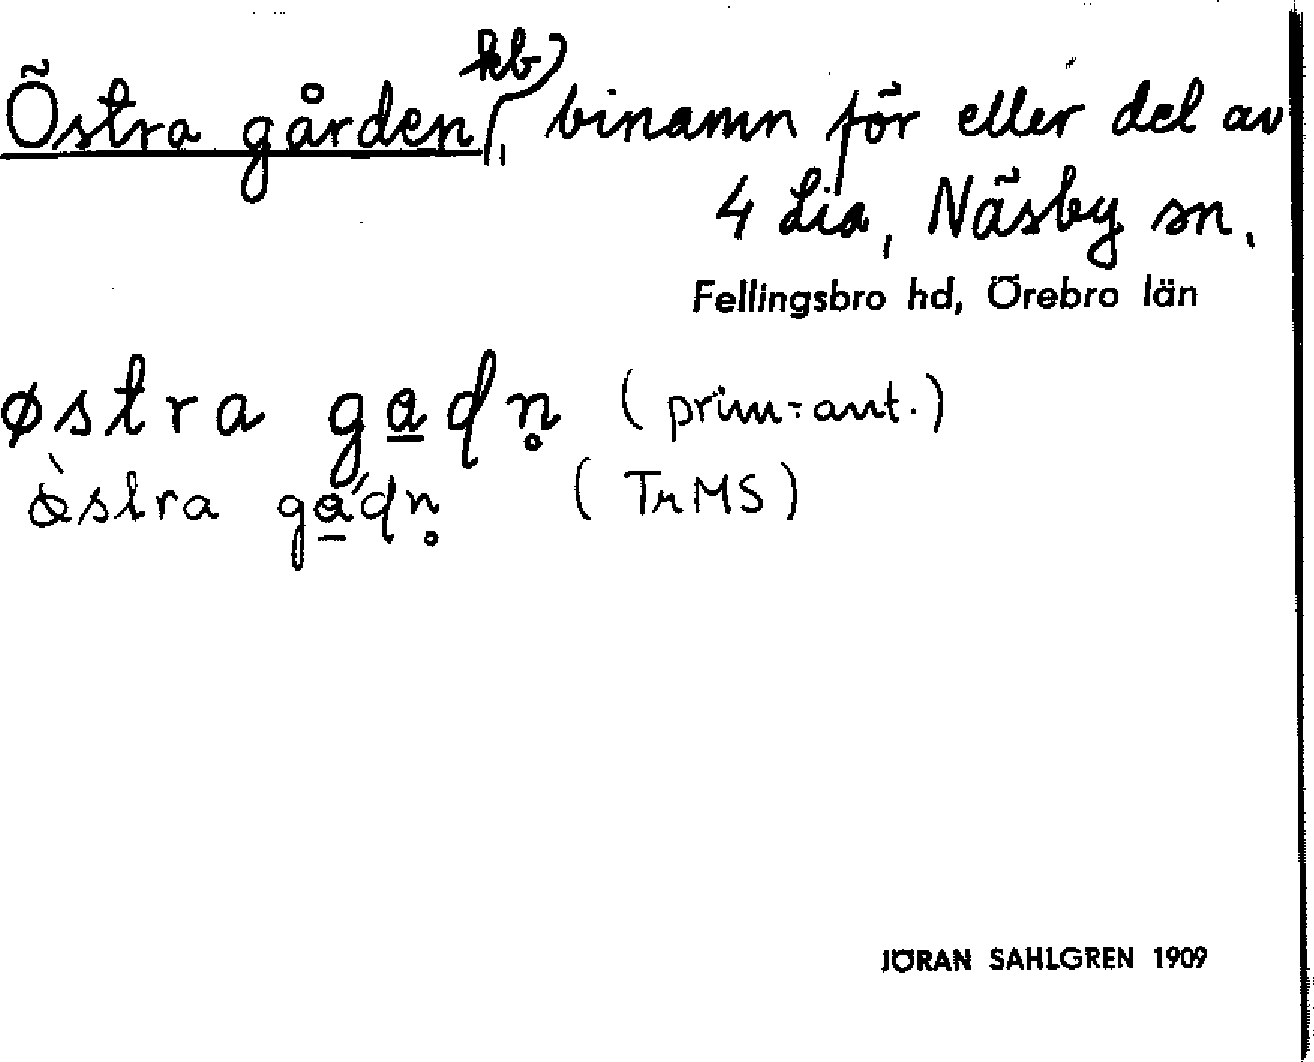 Östra gården, hb binamn för eller del av
4 Lia, Näsby sn.
Fellingsbro hd, Örebro län
østra ga̲dn̥ (prim-ant.)
ø̀stra gá̲dn̥ (TrMS)
JÖRAN SAHLGREN 1909